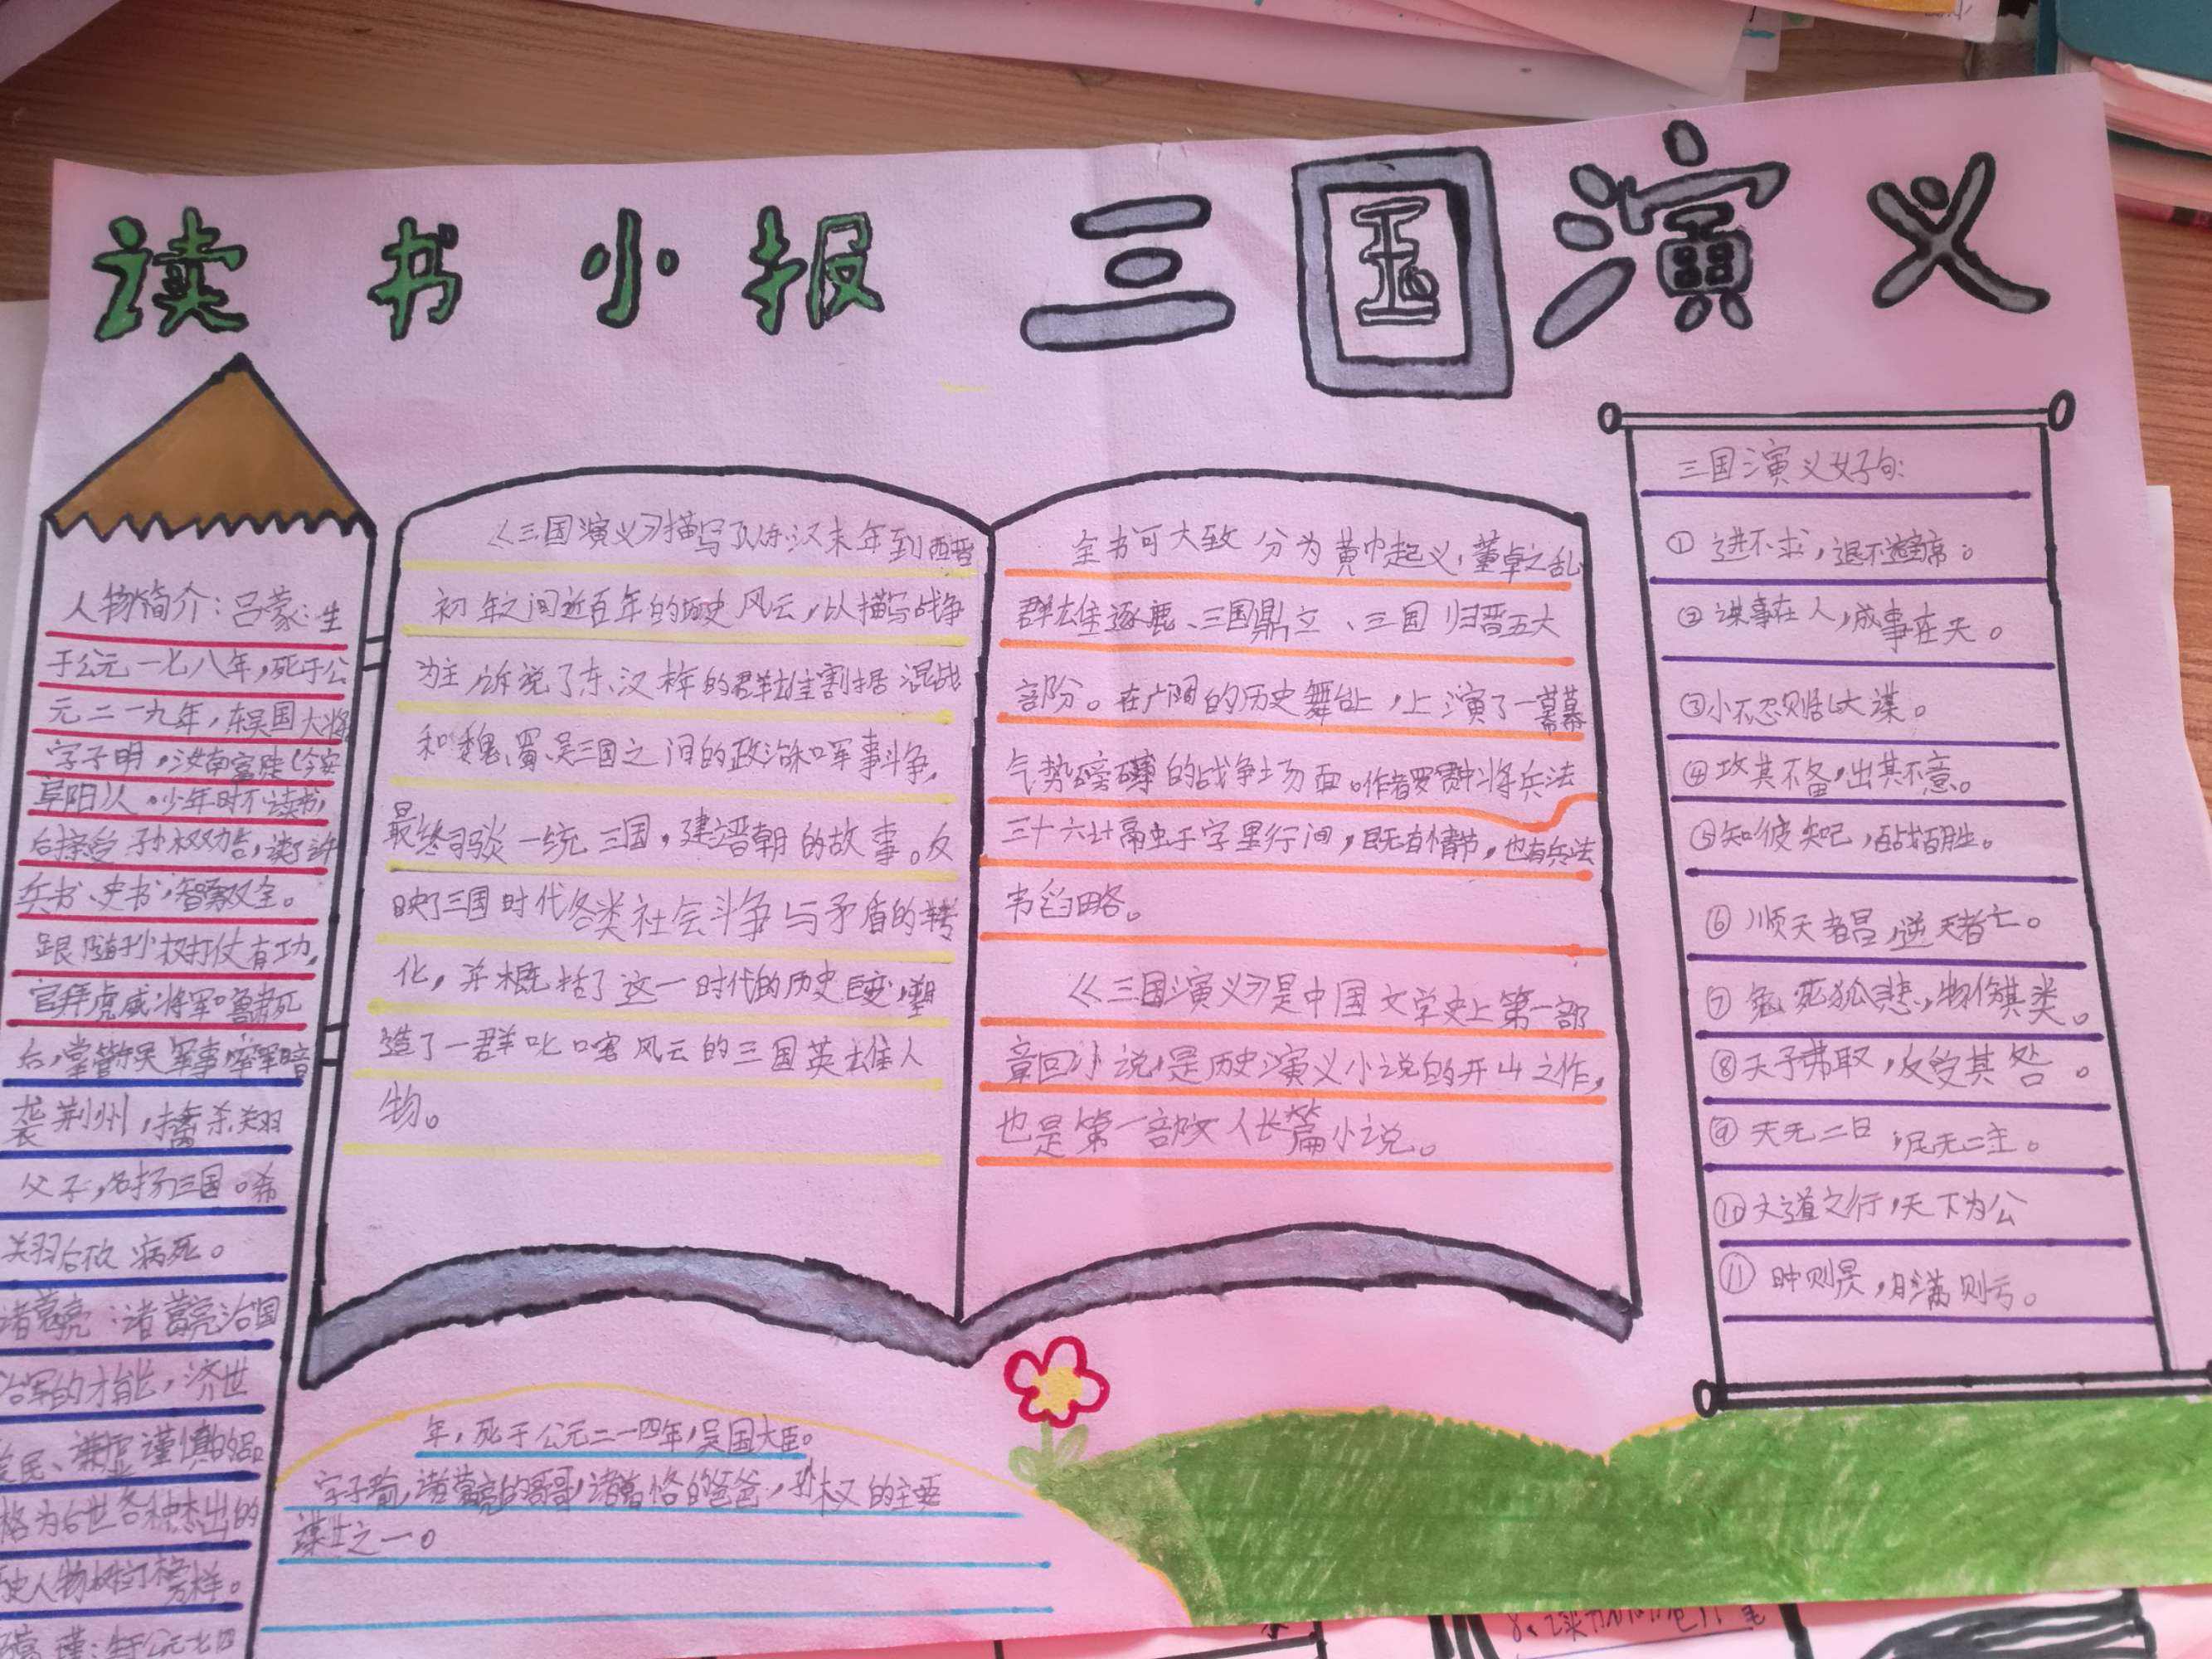 读书小报 三国演义
人物简介:吕蒙:生
于公元一七八年,死于公
元二一九年,东吴国大将
字子明,汝南富陂(今安
阜阳)人。少年时不读书,
后接受孙权劝告,读了许
兵书、史书,智家双全。
跟随孙权打仗有功,
官拜虎威将军。鲁肃死
后,掌管东吴军事,率军暗
袭荆州,擒杀关羽
父子,名扬三国。杀
关羽后不久病死。
诸葛亮:诸葛亮治国
治军的才能,济世
爱民、谦虚谨慎的品
格为后世各种杰出的
历史人物树立了榜样。
瑾:生于公元一七四
《三国演义》描写了从东汉末年到西晋
初年之间近百年的历史风云,以描写战争
为主,诉说了东汉末年的群雄割据混战
和魏、蜀、吴三国之间的政治和军事斗争,
最终司马炎一统三国,建立晋朝的故事。反
映了三国时代各类社会斗争与矛盾的转
化,并概括了这一时代的历史巨变,塑
造了一群叱咤风云的三国英雄人
物。
全书可大致分为黄巾起义、董卓之乱
群雄逐鹿、三国鼎立、三国归晋五大
部份。在广阔的历史舞台,上演了一幕幕
气势磅礴的战争场面。作者罗贯中将兵法
三十六计融虫于字里行间,既有情节,也有兵法
韦舀略。
《三国演义》是中国文学史上第一部
章回小说,是历史演义小说的开山之作,
也是第一部文人长篇小说。
三国演义好句:
①进不求,退不避席。
②谋事在人,成事在天。
③小不忍则乱大谋。
④攻其不备,出其不意。
⑤知彼知己,百战百胜。
⑥顺天者昌,逆天者亡。
⑦兔死狐悲,物伤其类。
⑧天予弗取,反受其咎。
⑨天无二日,民无二主。
⑩大道之行,天下为公
⑪日中则昃,月满则亏。
年,死于公元二一四年,吴国大臣。
字子瑜,诸葛亮的哥哥,诸葛恪的爸爸,孙权的主要
谋士之一。